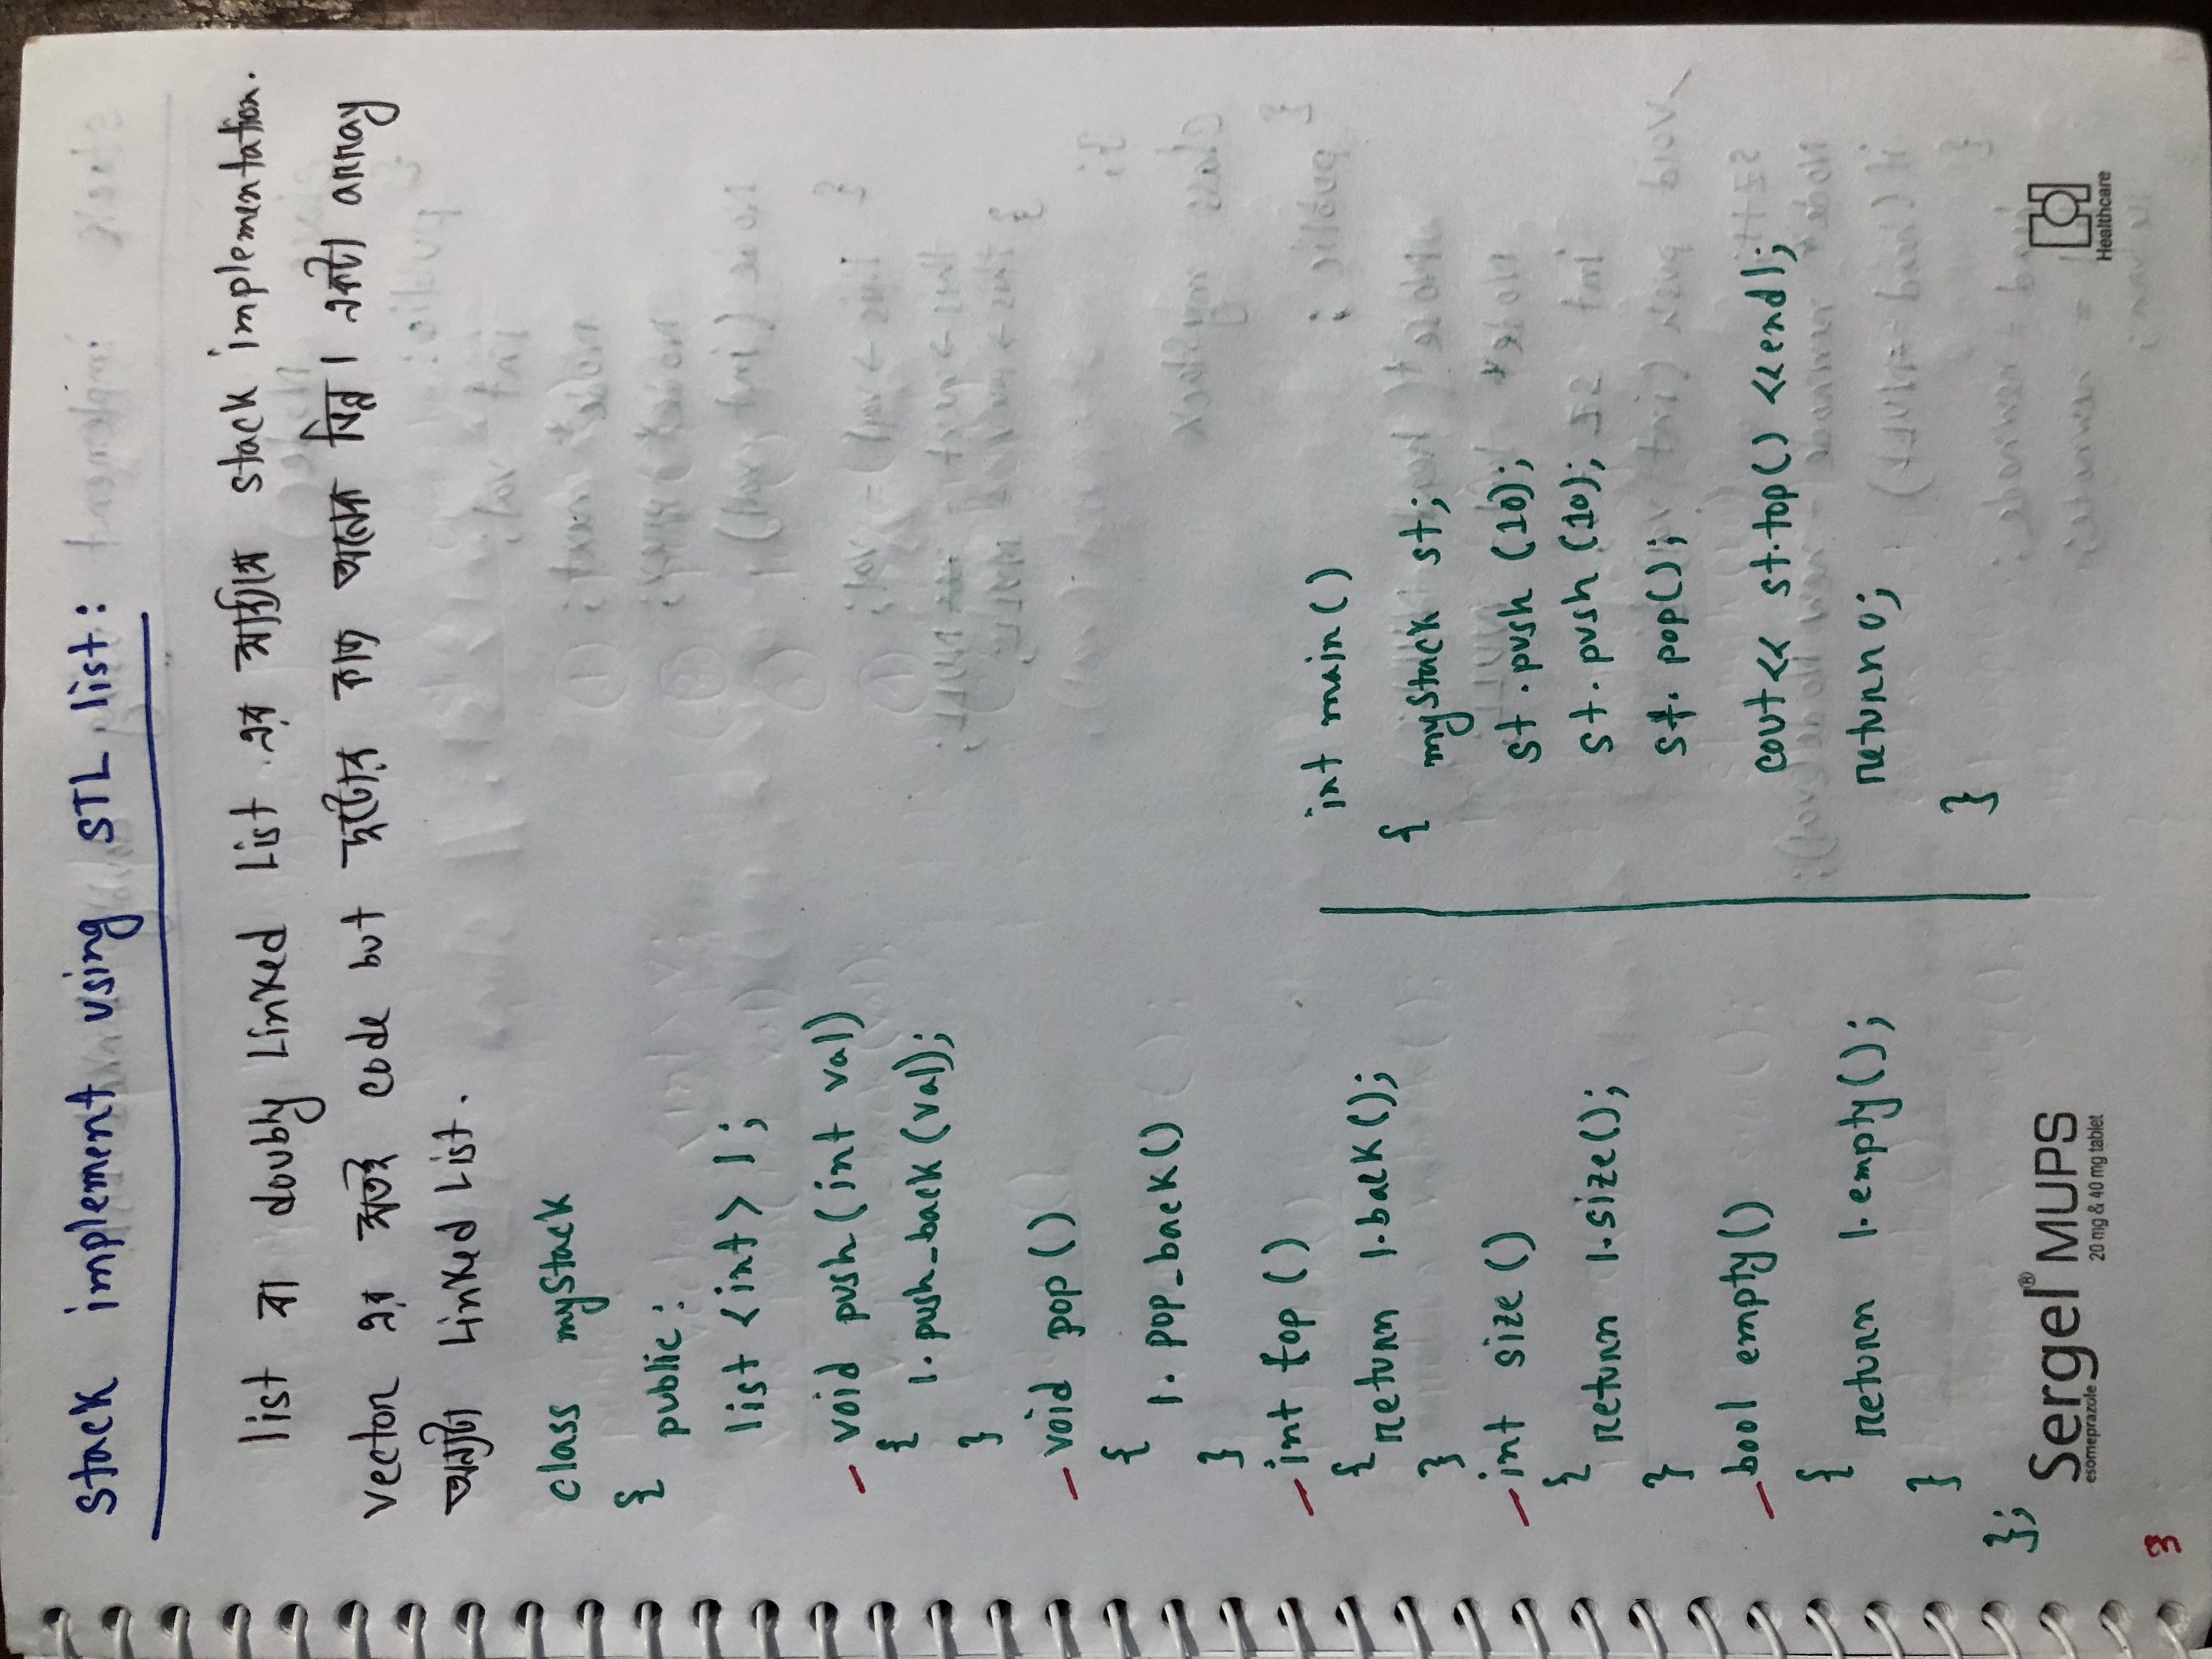 stack implement using STL list:
list বা doubly Linked List এর মাধ্যমে stack implementation.
vector এর মতই code but দুটোর কাজ অনেক ভিন্ন। একটা array
অন্যটা Linked List.
class myStack
{
public:
list <int> l;
void push(int val)
{
l.push_back(val);
}
void pop()
{
l.pop_back()
}
int top()
{ return l.back();
}
int size()
{
return l.size();
}
bool empty()
{
return l.empty();
}
};
int main()
{
myStack st;
st.push (10);
st.push (10);
st.pop();
cout<< st.top() <<endl;
return 0;
}
Sergel® MUPS
esomeprazole
20 mg & 40 mg tablet
Healthcare
3